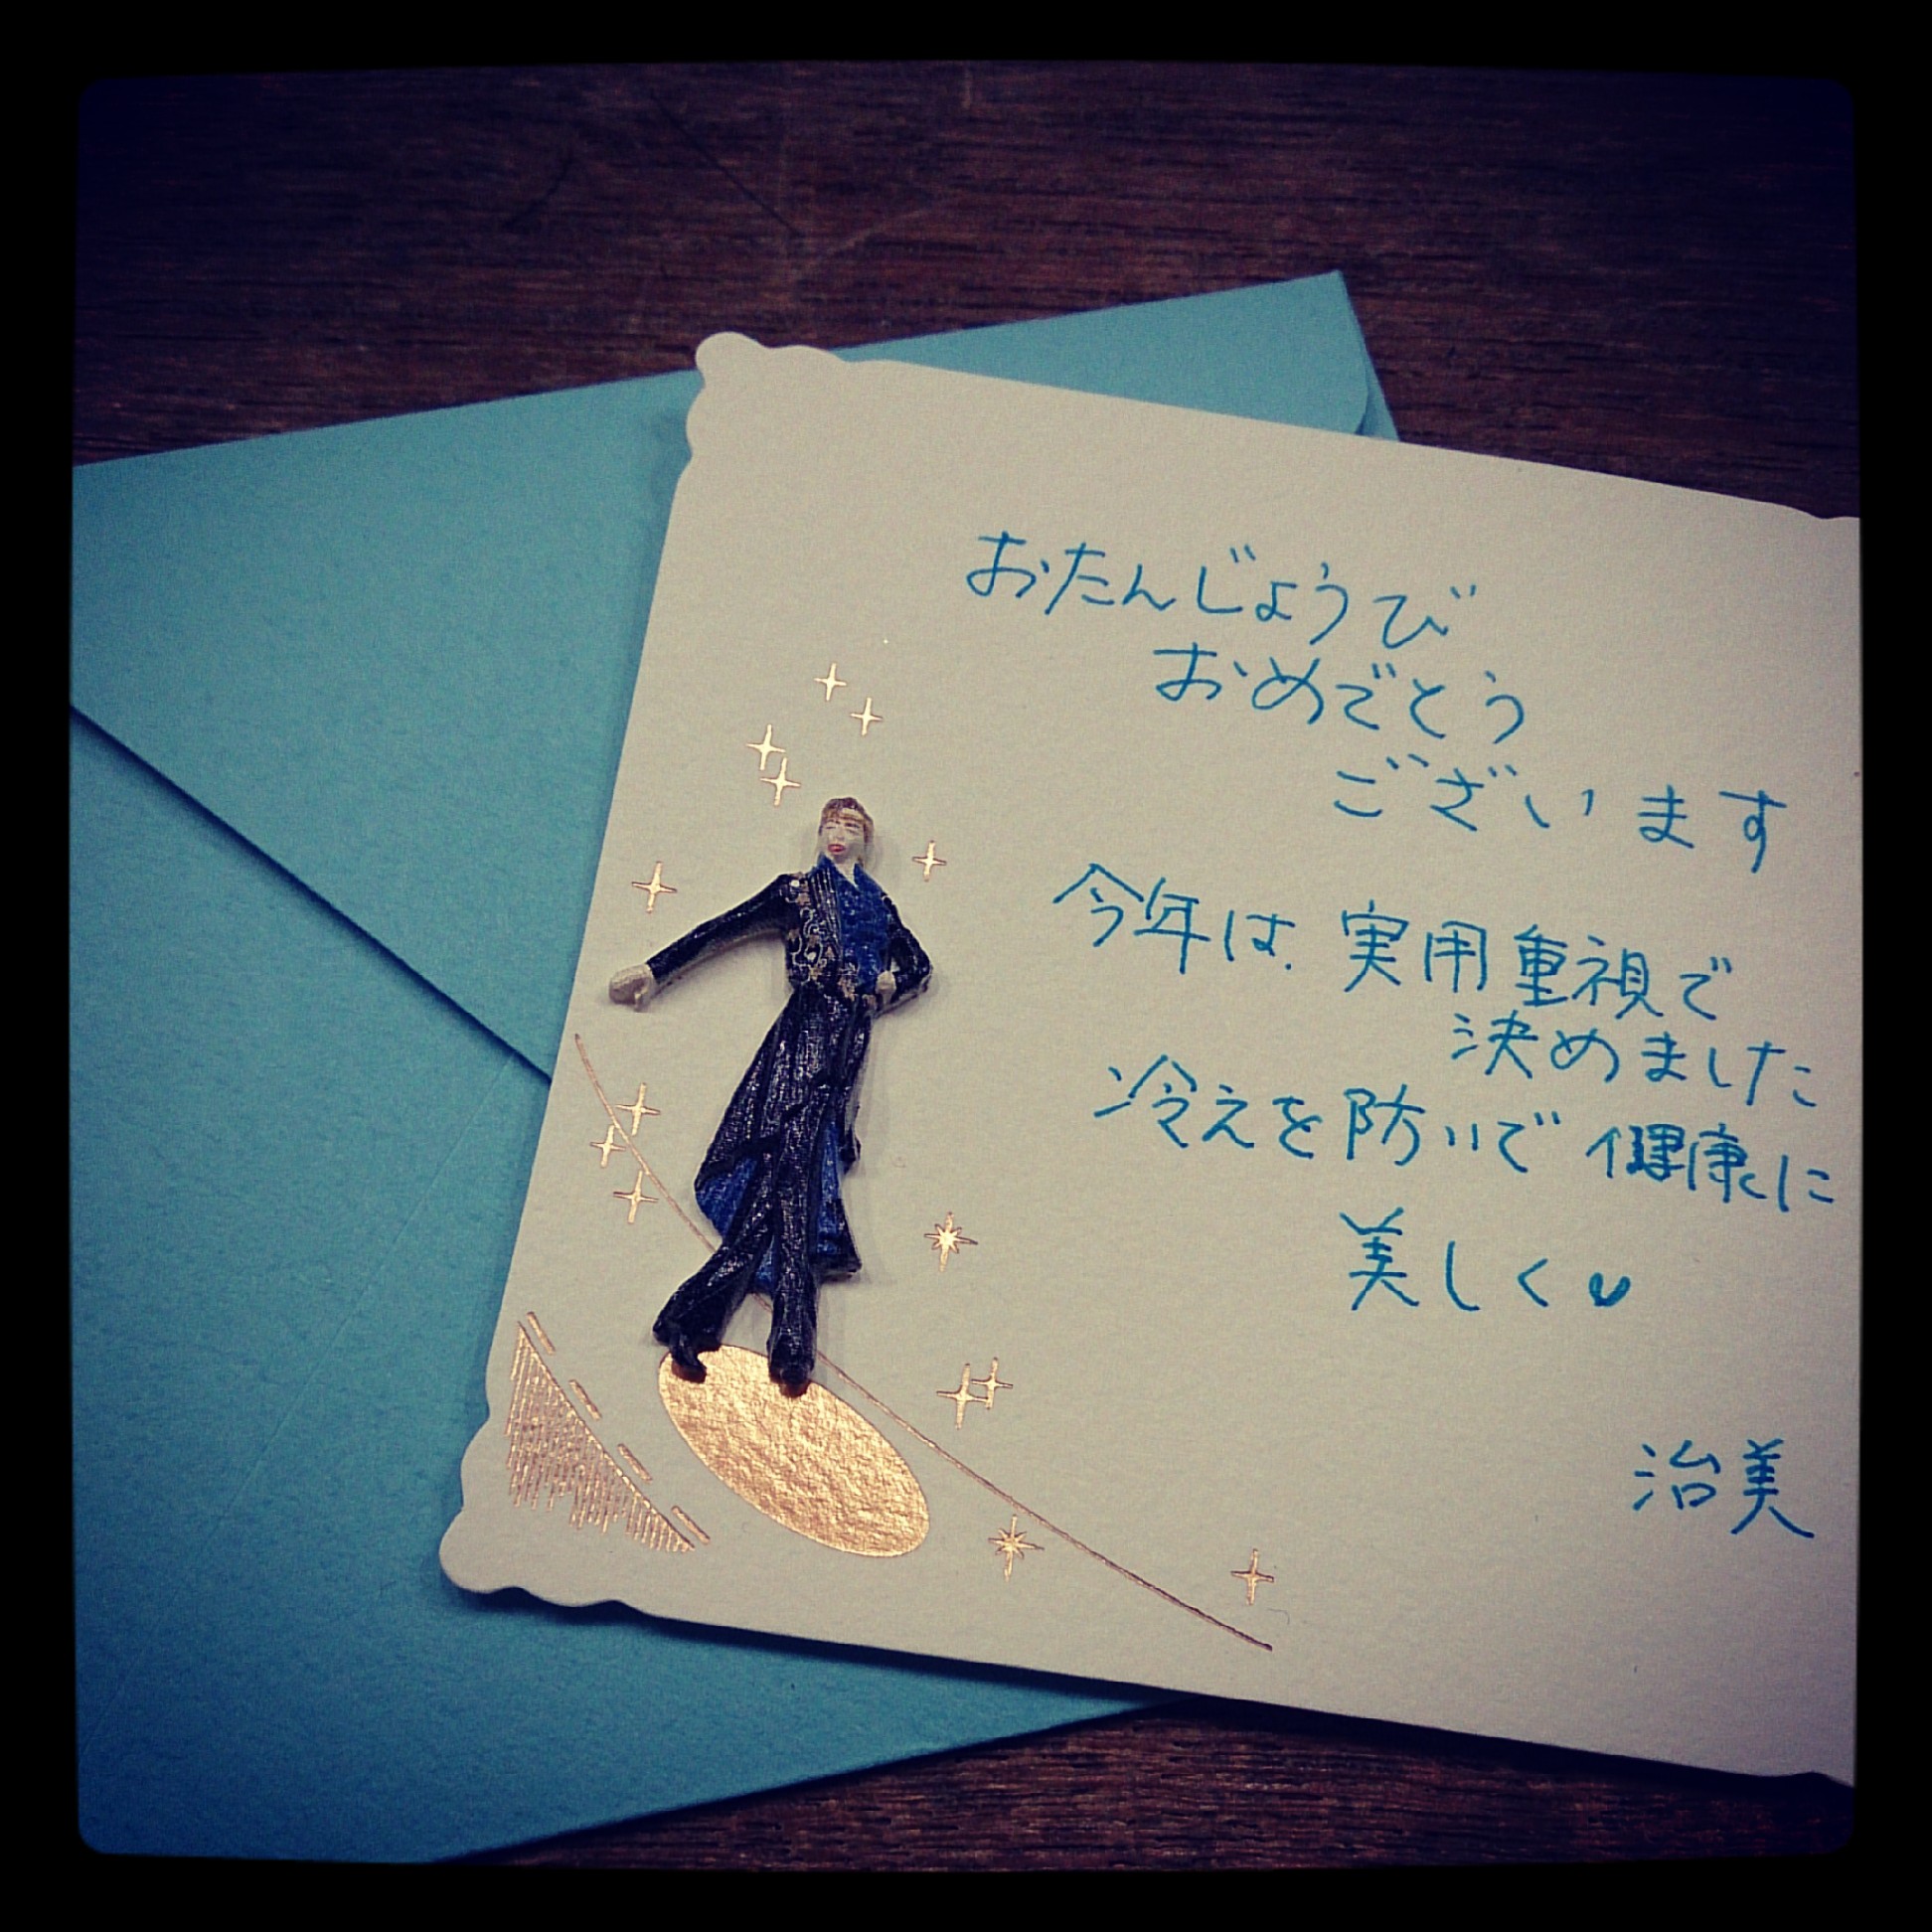 おたんじょうび
おめでとう
ございます
今年は、実用重視で
決めました
冷えを防いで健康に
美しく♥
治美